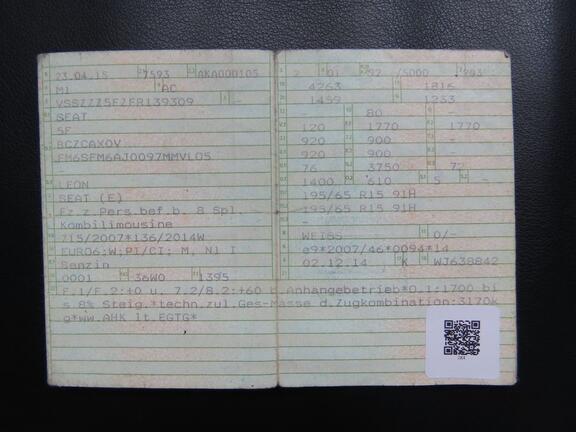 23.04.15 7593 AKA000105
M1 AC
VSSZZZ5FZFR139309 -
SEAT
5F
BCZCAX0V
FM6SFM6AJ0097MMVL05
-
LEON
SEAT (E)
Fz.z.Pers.bef.b. 8 Spl.
Kombilimousine
715/2007*136/2014W
EURO6;W;PI/CI; M, N1 I
Benzin
0001 36W0 1395
2 01 92 /5000 293
4263 1816
1459 1233
- 80 -
1120 1770 1770
920 900 -
920 900 -
76 3750 72
1400 610 5 -
195/65 R15 91H
195/65 R15 91H
-
WEISS 0/-
e9*2007/46*0094*14
02.12.14 K WJ638842
F.1/F.2:+0 u. 7.2/8.2:+60 b.Anhangebetrieb*0.1:1700 bi
s 8% Steig.*techn.zul.Ges-Masse d.Zugkombination:3170k
g*ww.AHK lt.EGTG*